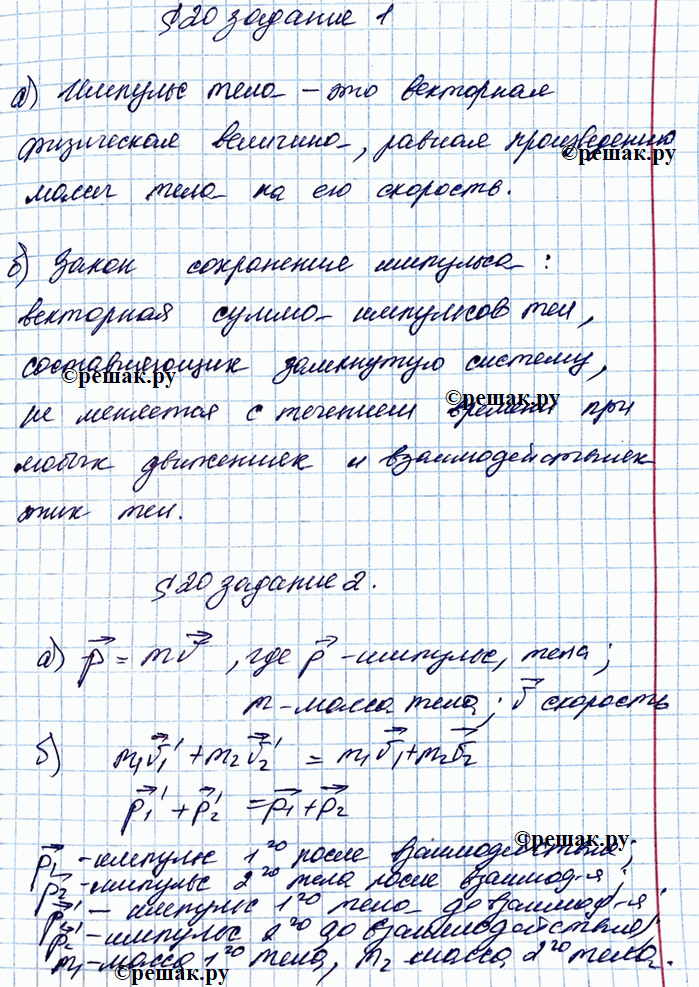 §20 задание 1
а) Импульс тела – это векторная
физическая величина, равная произведению
©решак.ру
массы тела на его скорость.
б) Закон сохранение импульса:
векторная сумма импульсов тел,
составляющих замкнутую систему,
©решак.ру
©решак.ру
не меняется с течением времени при
любых движениях и взаимодействиях
этих тел.
§20 задание 2.
а) p⃗ = mv⃗, где p⃗ - импульс, тела;
m - масса тела; v⃗ скорость
б) m₁v⃗₁' + m₂v⃗₂' = m₁v⃗₁ + m₂v⃗₂
p⃗₁' + p⃗₂' = p⃗₁ + p⃗₂
©решак.ру
p⃗₁ - импульс 1го после взаимодействия;
p⃗₂ - импульс 2го тела после взаимод-я;
p⃗₁' – импульс 1го тела до взаимод-я
p⃗₂' - импульс 2го до взаимодействия;
m₁ - масса 1го тела, m₂ масса 2го тела.
©решак.ру